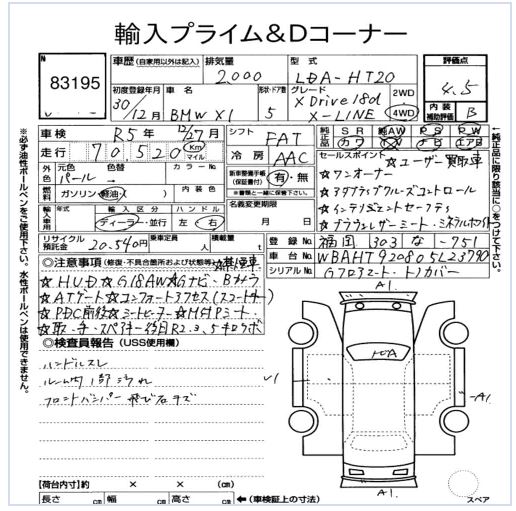 輸入プライム&Dコーナー
N
83195
車歴 (自家用以外は記入)
排気量
2,000
型式
LDA-HT20
評価点
4.5
初度登録年月
30/12月
車名
BMW X1
形状・ドア数
5
グレード
X Drive 18d
X-LINE
2WD
4WD
内装補助評価
B
車検
R5年 12/27月
シフト
FAT
純正品
SR
純AW
PS
PW
カワ
ナビ
TV
エアB
走行
70,520
Km
マイル
冷房
AAC
セールスポイント
☆ユーザー買取車
☆ワンオーナー
☆アダプティブクルーズコントロール
☆インテリジェントセーフティ
☆ブラウンレザーシート・ミネラルホワイト
外色
元色
パール
色替
→
カラーNo.
新車整備手帳(保証書付)
有・無
※書類と一緒に保管下さい。
燃料
ガソリン・軽油・
内装色
名義変更期限
月 日
輸入車用
年式
輸入区分
ディーラー・並行
ハンドル
左・右
リサイクル預託金
20,540円
乗車定員
人
積載量
t
登録No
福岡 303 な -751
車台No
WBAHT920805L23790
シリアルNo
◎注意事項 (修復・不具合箇所および状態等)
G7Dスマート・トノカバー
☆H.U.D ☆G18AW☆Gナビ・Bカメラ
☆ATゲート☆コンフォートアクセス(スマートキー)
☆PDC前後☆シートヒーター☆
☆取・手・スペアキー
◎検査員報告 (USS使用欄)
ハンドルスレ
ルーム内1部汚れ
フロントバンパー飛び石キズ
A1.
U1
-A1.
A1.
スペア
【荷台内寸】約 × × (cm)
長さ cm 幅 cm 高さ cm ←(車検証上の寸法)
※必ず油性ボールペンをご使用下さい。水性ボールペンは使用できません。
←純正品に限り該当に○をつけて下さい。